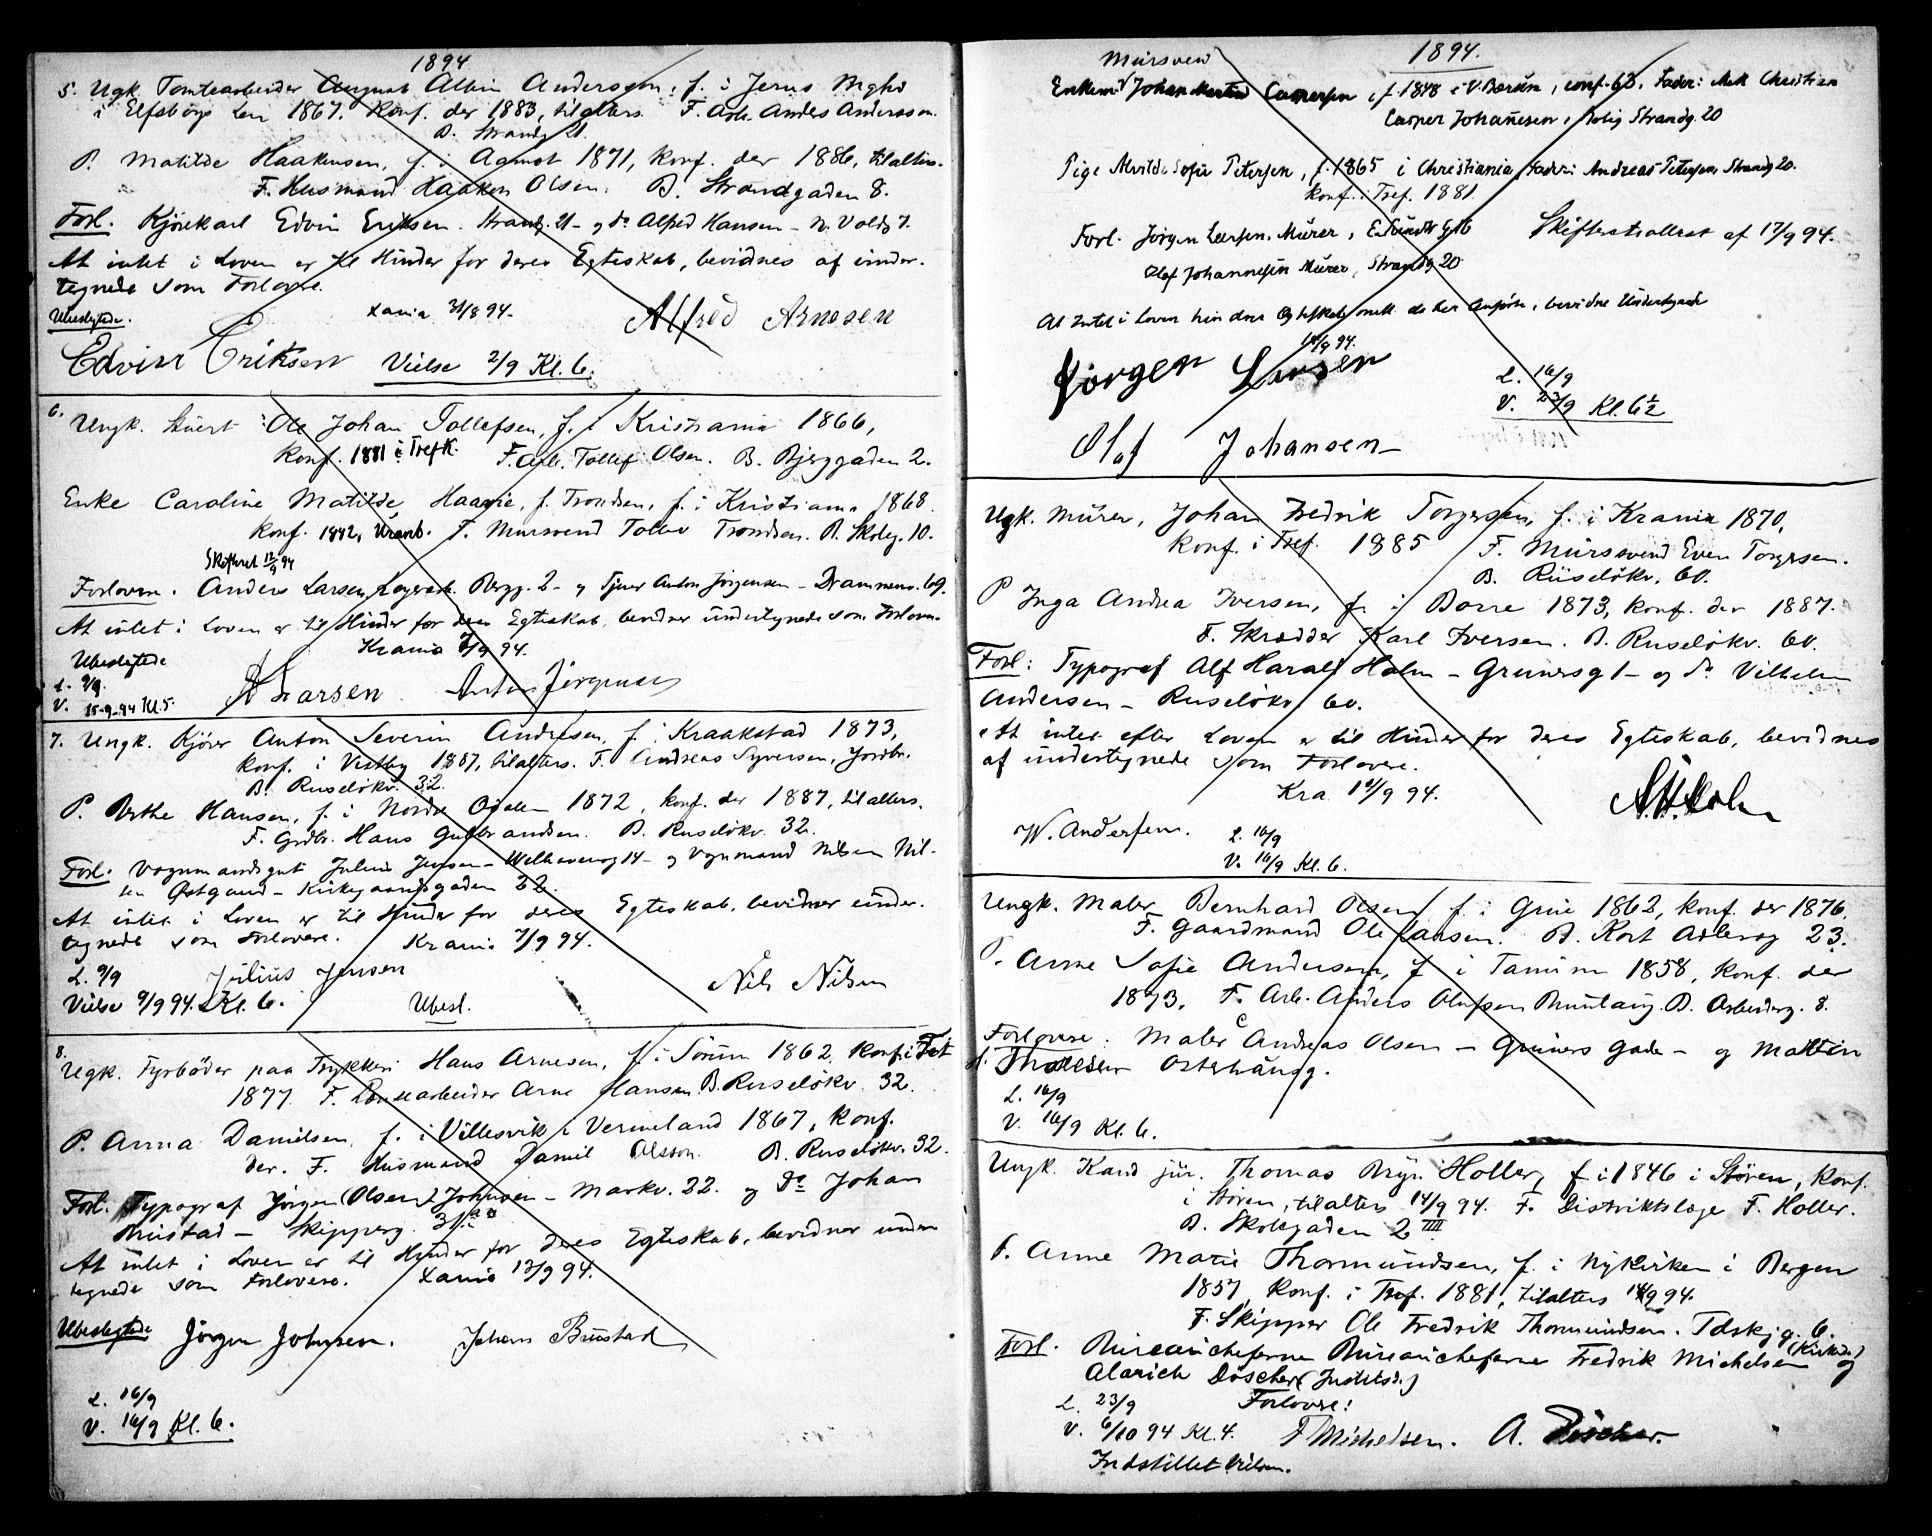 1894
5. Ugk. Tomtearbeider August Albin Andersson, f. i Jerns Mghd
i Elfsborgs Len 1867. Konf. der 1883, tilalters. F. Arb. Anders Andersson.
B. Strandg 21.
P. Matilde Haakensen, f. i Aamot 1871, Konf. der 1886, tilalters.
F. Husmand Haaken Olsen. B. Strandgaden 8.
Forl. Kjørekarl Edvin Eriksen. Strandg. 21 – og do Alfred Hansen – N. Voldg 7.
At intet i Loven er til Hinder for deres Egteskab, bevidnes af under-
tegnede som Forlovere.
Ubeslegtede. Xania 31/8 94. Alfred Arnesen
Edvin Eriksen Vielse 2/9 Kl. 6.
6. Ungk. Stuert Ole Johan Tollefsen, f. i Kristiania 1866,
Konf. 1881 i Trefk. F. Arb. Tollef Olsen. B. Bjerggaden 2.
Enke Caroline Matilde Haavie, f. Trondsen, f. i Kristiania 1868.
Konf. 1882, Uranb. F. Mursvend Tolev Trondsen. B. Skoleg. 10.
Skifteret 12/9 94
Forlovere. Anders Larsen, Lagerarb. Bergg. 2 – og Tjener Anton Jørgensen – Drammensv. 69.
At intet i Loven er til Hinder for deres Egteskab, bevidner undertegnede som Forlovere.
Ubeslegtede Krania 7/9 94.
L. 9/9.
V. 15-9-94 Kl. 5. A Larsen. Anton Jørgensen
7. Ungk. Kjører Anton Severin Andresen, f. i Kraakstad 1873,
Konf. i Vestby 1887, tilalters. F. Andreas Syversen, Jordbr.
B. Ruseløkv. 32.
P. Berthe Hansen, f. i Nordre Odalen 1872, konf. der 1887, tilalters.
F. Grdbr. Hans Gulbrandsen. B. Ruseløkv. 32.
Forl. Vognmandsgut Julius Jensen – Welhavensg 14 – og Vognmand Nils Nil-
sen Østgaard – Kirkegaardsgaden 22.
At intet i Loven er til Hinder for deres Egteskab, bevidner under-
tegnede som Forlovere. Krania 7/9 94.
L. 9/9 Julius Jensen Nils Nilsen
Vielse 9/9 94. Kl. 6. Ubesl.
8. Ugk. Fyrbøder paa Trykkeri Hans Arnesen, f. i Sørum 1862, Konf. i Fet
1877. F. Løsearbeider Arne Hansen. B. Ruseløkv. 32.
P. Anna Danielsen, f. i Villesvik i Vermeland 1867, Konf.
der. F. Husmand Daniel Olsson. B. Ruseløkv. 32.
Forl. Typograf Jørgen (Olsen) Johnsen – Markv. 22. og do Johan
Brustad – Skipperg. 31.
At intet i Loven er til Hinder for deres Egteskab, bevidner under-
tegnede som Forlovere. Xania 13/9 94.
Ubeslegtede Jørgen Johnsen. Johan Brustad
L. 16/9
V. 16/9 Kl. 6.
1894.
Mursvend
Enkemd Johan Martin Caspersen, f. 1848 i V. Bærum, conf. 63. Fader: Mek Christian
Casper Johanesen, Bolig Strandg. 20
Pige Alvilde Sofie Petersen, f. 1865 i Christiania, Fader: Andreas Petersen, Strandg 20.
Konf. i Tref. 1881.
Forl. Jørgen Larsen. Murer, E. Sundts g 16 Skifterattest af 17/9 94.
Olaf Johannesen Murer, Strandg 20
At Intet i Loven hindrer Egteskab mell. de her Anførte, bevidne Undertegnede
14/9 94.
Jörgen Larsen L. 16/9
V. 23/9 Kl. 6½
Olaf Johansen
Ugk. Murer, Johan Fredrik Torgersen, f. i Krania 1870,
Konf. i Tref. 1885 F. Murssvend Even Torgersen.
B. Ruseløkv. 60.
P Inga Andrea Iversen, f. i Borre 1873, konf. der 1887.
F. Skrædder Karl Iversen. B. Ruseløkv. 60.
Forl: Typograf Alf Harald Holm – Grunersg 1 – og do Vilhelm
Andersen – Ruseløkv 60.
At intet efter Loven er til Hinder for deres Egteskab, bevidnes
af undertegnede som Forlovere.
Kra. 14/9 94. A. H. Holm
W. Andersen. L. 16/9
V. 16/9 Kl. 6.
Ungk. Maler Bernhard Olsen, f. i Grue 1862, konf. der 1876.
F. Gaardmand Ole Larsen. B. Kort Adlersg 23.
P. Anne Sofie Andersen, f. i Tanum 1858, konf. der
1873. F. Arb. Anders Olufsen B. Arbeiderg. 8.
Forlovere: Maler C Andreas Olsen – Gruners Gade – og Martin
Thoresen Osterhausg.
L. 16/9
V. 16/9 Kl. 6.
Ungk. Kand jur. Thomas Bryn Holler, f. i 1846 i Støren, Konf.
i Støren, tilalters 14/9 94. F. Distriktslæge F. Holler.
B. Skolegaden 2 IIII
P. Anne Marie Thormundsen, f. i Nykirken i Bergen
1857, Konf. i Tref. 1881, tilalters 14/9 94.
F. Skipper Ole Fredrik Thormundsen. Tdskj.g. 6.
Forl. Bureauchefene Bureaucheferne Fredrik Michelsen (Kirked.) og
Alarich Döscher (Justitsd.)
L. 23/9 Forlovere:
V. 6/10 94 Kl. 4. F Michelsen. A. Döscher.
Indstillet Vielsen.